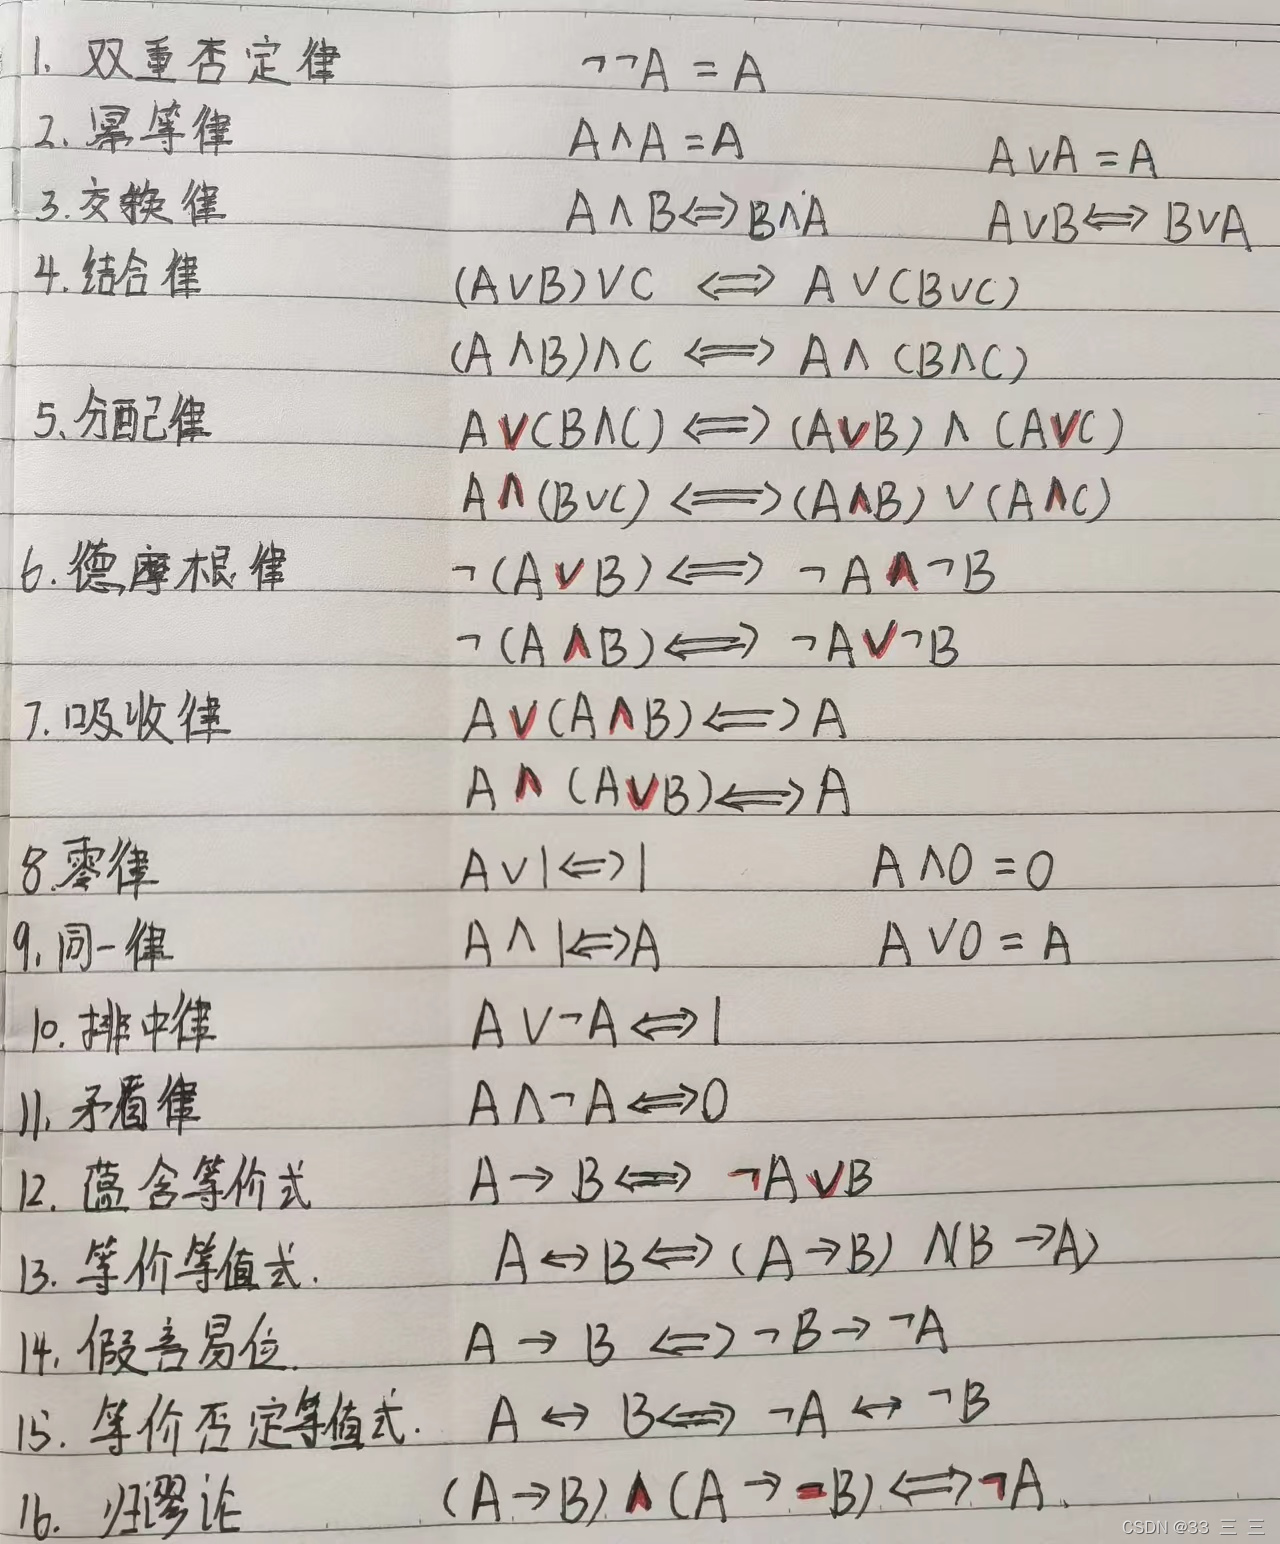 1. 双重否定律 ¬¬A = A
2. 幂等律 A∧A = A A∨A = A
3. 交换律 A∧B⇔B∧A A∨B⇔B∨A
4. 结合律 (A∨B)∨C ⇔ A∨(B∨C)
(A∧B)∧C ⇔ A∧(B∧C)
5. 分配律 A∨(B∧C) ⇔ (A∨B)∧(A∨C)
A∧(B∨C) ⇔ (A∧B)∨(A∧C)
6. 德摩根律 ¬(A∨B) ⇔ ¬A∧¬B
¬(A∧B) ⇔ ¬A∨¬B
7. 吸收律 A∨(A∧B) ⇔ A
A∧(A∨B) ⇔ A
8. 零律 A∨1⇔1 A∧0 = 0
9. 同一律 A∧1⇔A A∨0 = A
10. 排中律 A∨¬A⇔1
11. 矛盾律 A∧¬A⇔0
12. 蕴含等价式 A→B⇔ ¬A∨B
13. 等价等值式. A↔B⇔(A→B)∧(B→A)
14. 假言易位. A→B ⇔ ¬B→¬A
15. 等价否定等值式. A↔B⇔ ¬A↔¬B
16. 归谬论 (A→B)∧(A→¬B)⇔¬A.
CSDN @33 三 三